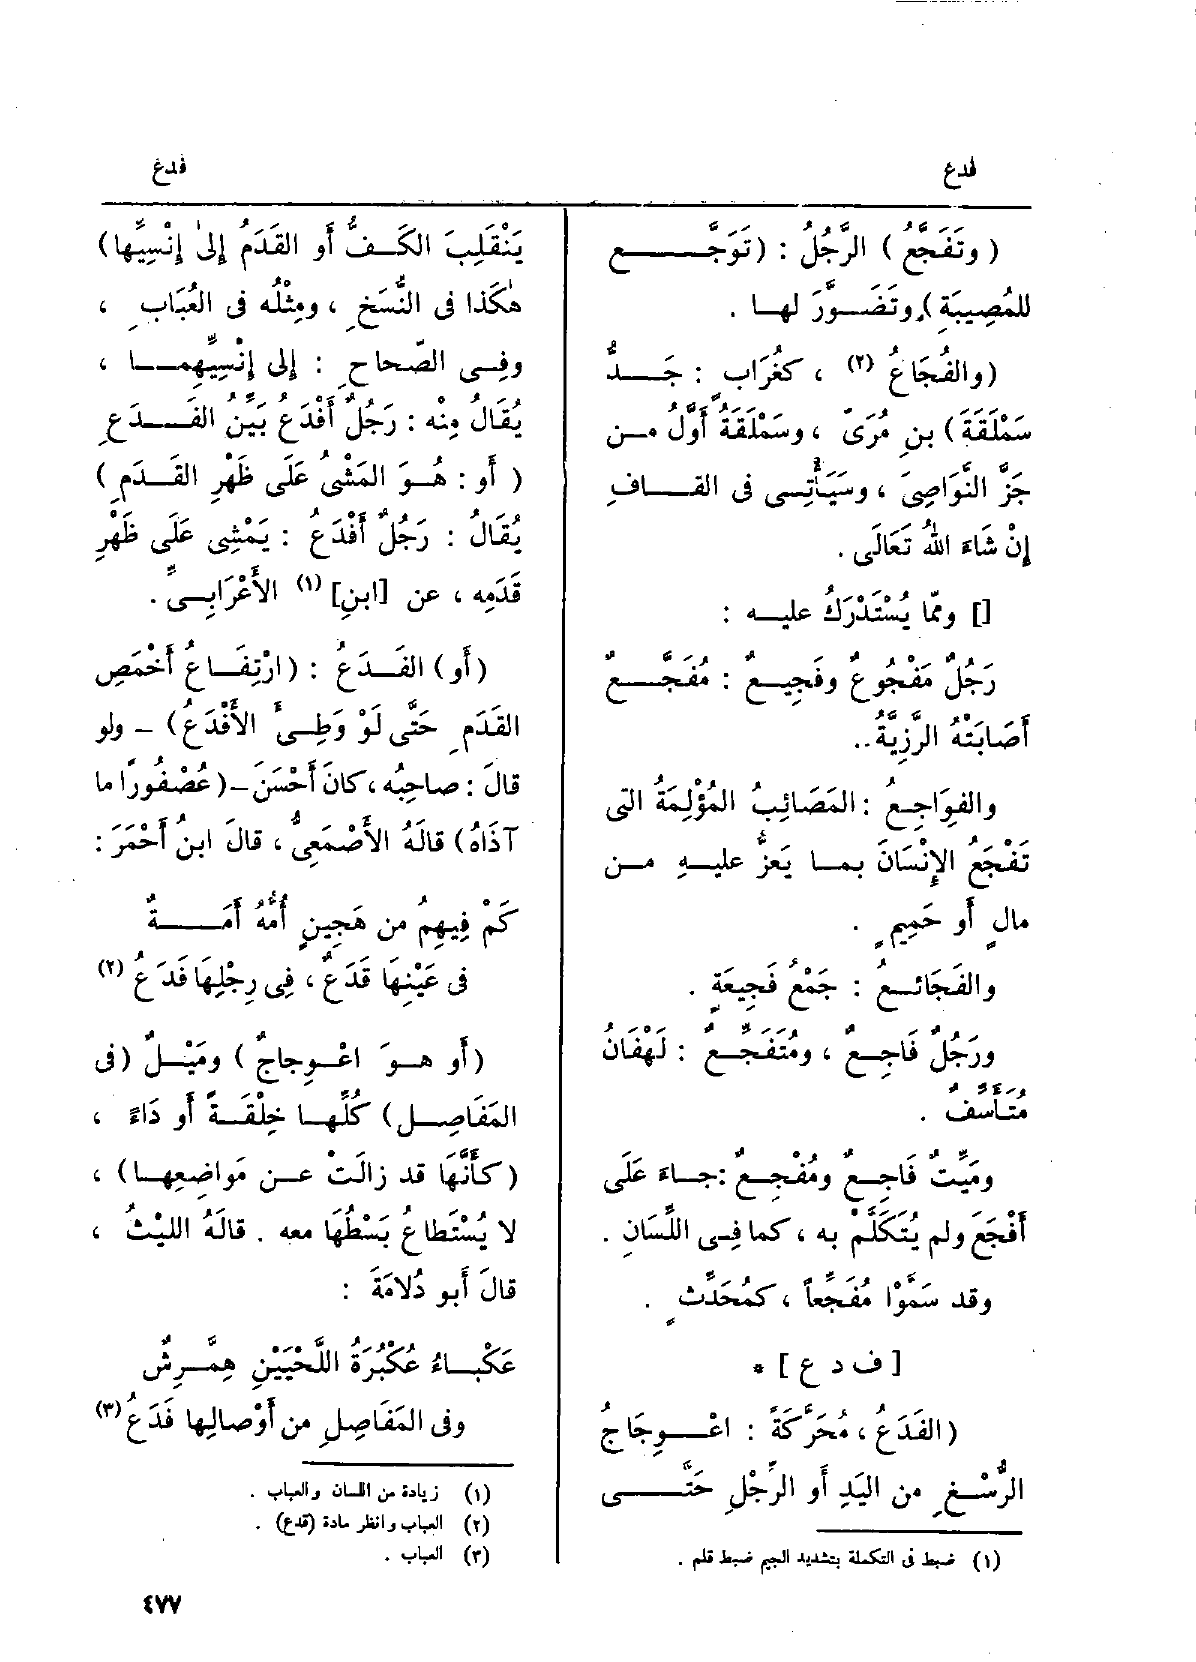 فدع
فدغ
(وتَفَجَّعُ) الرَّجُلُ : (تَوَجَّع
للمُصِيبَةِ) وتَضَوَّرَ لها .
(والفُجَاعُ (٢) ، كغُرَاب : جَدُّ
سَمْلَقَةَ) بنِ مُرَىّ ، وسَمْلَقَةُ أَوَّلُ من
جَزَّ النَّوَاصِىَ ، وسَيَأْتِى فى القافِ
إِنْ شاءَ اللهُ تَعَالَى .
[] وممّا يُسْتَدْرَكُ عليه :
رَجُلٌ مَفْجُوعٌ وفَجِيعٌ : مُفَجَّعٌ
أَصَابَتْهُ الرَّزِيَّةُ ..
والفوَاجِعُ : المَصَائِبُ المُؤْلِمَةُ التى
تَفْجَعُ الإِنْسَانَ بما يَعزُّ عليهِ من
مالٍ أو حَمِيمٍ .
والفَجَائعُ : جَمْعُ فَجِيعَةٍ .
ورَجُلٌ فَاجِعٌ ، ومُتَفَجِّعٌ : لَهْفَانُ
مُتَأَسِّفٌ .
ومَيِّتٌ فَاجِعٌ ومُفْجِعٌ : جاءَ عَلَى
أَفْجَعَ ولم يُتَكَلَّمْ به ، كما فِى اللِّسَانِ .
وقد سَمَّوْا مُفَجِّعاً ، كمُحَدِّثٍ .
[ ف د ع ] *
(الفَدَعُ ، مُحَرَّكَةً : اعْوِجَاجُ
الرُّسْغِ من اليَدِ أو الرِّجْلِ حَتَّى
(١) ضبط فى التكملة بتشديد الجيم ضبط قلم .
يَنْقَلِبَ الكَفُّ أو القَدَمُ إلىٰ إِنْسِيِّها)
هٰكَذا فى النُّسَخِ ، ومِثْلُه فى العُبَابِ ،
وفِى الصّحاحِ : إلى إِنْسِيِّهِما ،
يُقَالُ مِنْه : رَجُلٌ أَفْدَعُ بَيِّنُ الفَدَعِ
(أَو : هُوَ المَشْىُ عَلَى ظَهْرِ القَدَمِ)
يُقَالُ : رَجُلٌ أَفْدَعُ : يَمْشِى عَلَى ظَهْرِ
قَدَمِه ، عن [ابنِ] (١) الأَعْرَابِىِّ .
(أَو) الفَدَعُ : (ارْتِفَاعُ أَخْمَصِ
القَدَمِ حَتَّى لَوْ وَطِىأَ الأَفْدَعُ) – ولو
قالَ : صاحِبُه ، كانَ أَحْسَنَ – (عُصْفُورًا ما
آذَاهُ) قالَهُ الأَصْمَعِىُّ ، قالَ ابنُ أَحْمَرَ :
كَمْ فِيهِمُ من هَجِينٍ أُمُّهُ أَمَةٌ
فى عَيْنِهَا قَدَعٌ ، فِى رِجْلِهَا فَدَعُ (٢)
(أَو هوَ اعْوِجاجٌ) ومَيْلٌ (فى
المَفَاصِلِ) كُلِّها خِلْقَةً أو دَاءً ،
(كأَنَّهَا قد زالَتْ عن مَواضِعِها) ،
لا يُسْتَطاعُ بَسْطُهَا معه . قالَهُ الليْثُ ،
قالَ أبو دُلامَةَ :
عَكْباءُ عُكْبُرَةُ اللَّحْيَيْنِ هِمَّرِشٌ
وفى المَفَاصِلِ من أَوْصالِها فَدَعُ (٣)
(١) زيادة من اللسان والعباب .
(٢) العباب وانظر مادة (قدع) .
(٣) العباب .
٤٧٧